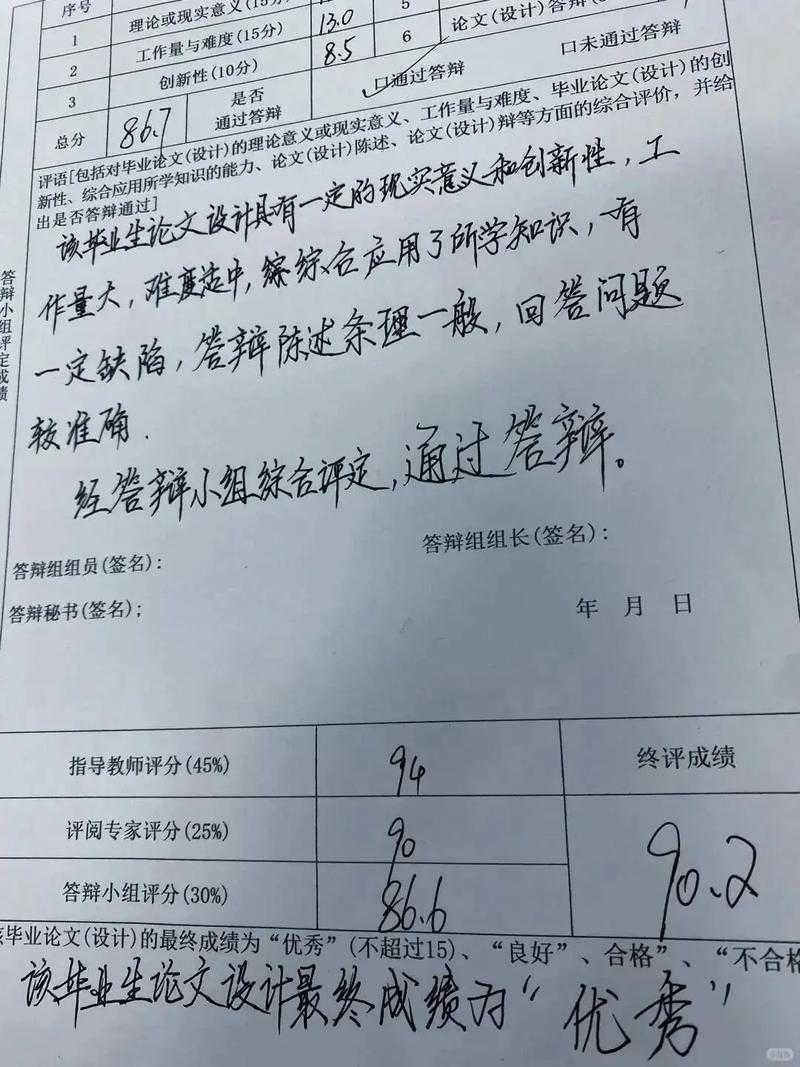 序号
理论或现实意义(15分)
13.0
5
论文(设计)答辩
1
工作量与难度(15分)
8.5
6
2
创新性(10分)
口通过答辩
口未通过答辩
3
总分
86.7
是否
通过答辩
评语[包括对毕业论文(设计)的理论意义或现实意义、工作量与难度、毕业论文(设计)的创
新性、综合应用所学知识的能力、论文(设计)陈述、论文(设计)辩等方面的综合评价，并给
出是否答辩通过]
该毕业生论文设计具有一定的现实意义和创新性，工
作量大，难度适中，综综合应用了所学知识，有
一定缺陷，答辩陈述条理一般，回答问题
较准确．
经答辩小组综合评定，通过答辩。
答辩小组评定成绩
答辩组组长(签名)：
答辩组组员(签名)：
答辩秘书(签名)；
年 月 日
指导教师评分(45%)
94
终评成绩
评阅专家评分(25%)
90
90.2
答辩小组评分(30%)
86.6
毕业论文(设计)的最终成绩为“优秀”(不超过15)、“良好”、合格”、“不合格
该毕业生论文设计最终成绩为“优秀”